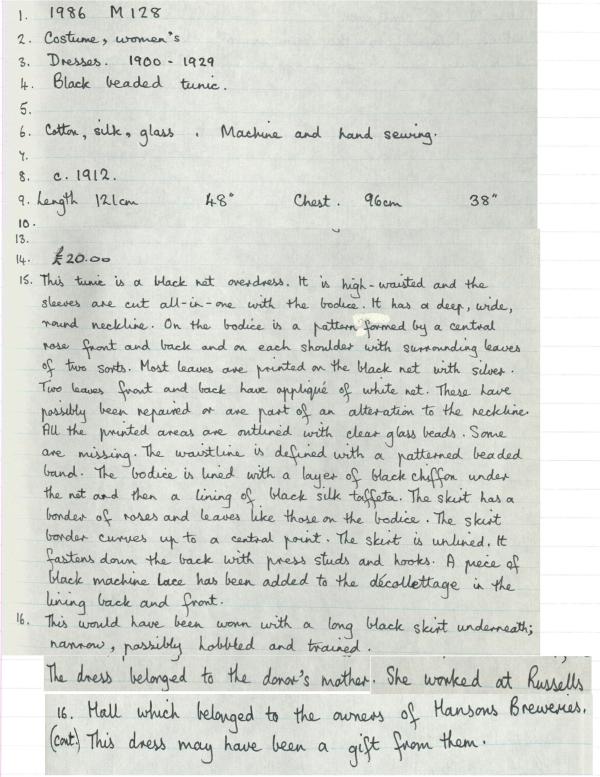 1. 1986 M128
2. Costume, women's
3. Dresses. 1900 - 1929
4. Black beaded tunic.
5.
6. Cotton, silk, glass. Machine and hand sewing.
7.
8. c. 1912.
9. Length 121cm 48" Chest. 96cm 38"
10.
13.
14. £20.00
15. This tunic is a black net overdress. It is high-waisted and the
sleeves are cut all-in-one with the bodice. It has a deep, wide,
round neckline. On the bodice is a pattern formed by a central
rose front and back and on each shoulder with surrounding leaves
of two sorts. Most leaves are printed on the black net with silver.
Two leaves front and back have appliqué of white net. These have
possibly been repaired or are part of an alteration to the neckline.
All the printed areas are outlined with clear glass beads. Some
are missing. The waistline is defined with a patterned beaded
band. The bodice is lined with a layer of black chiffon under
the net and then a lining of black silk taffeta. The skirt has a
border of roses and leaves like those on the bodice. The skirt
border curves up to a central point. The skirt is unlined. It
fastens down the back with press studs and hooks. A piece of
black machine lace has been added to the décollettage in the
lining back and front.
16. This would have been worn with a long black skirt underneath;
narrow, possibly hobbled and trained.
The dress belonged to the donor's mother. She worked at Russells
16. Hall which belonged to the owners of Hansons Breweries.
(cont.) This dress may have been a gift from them.